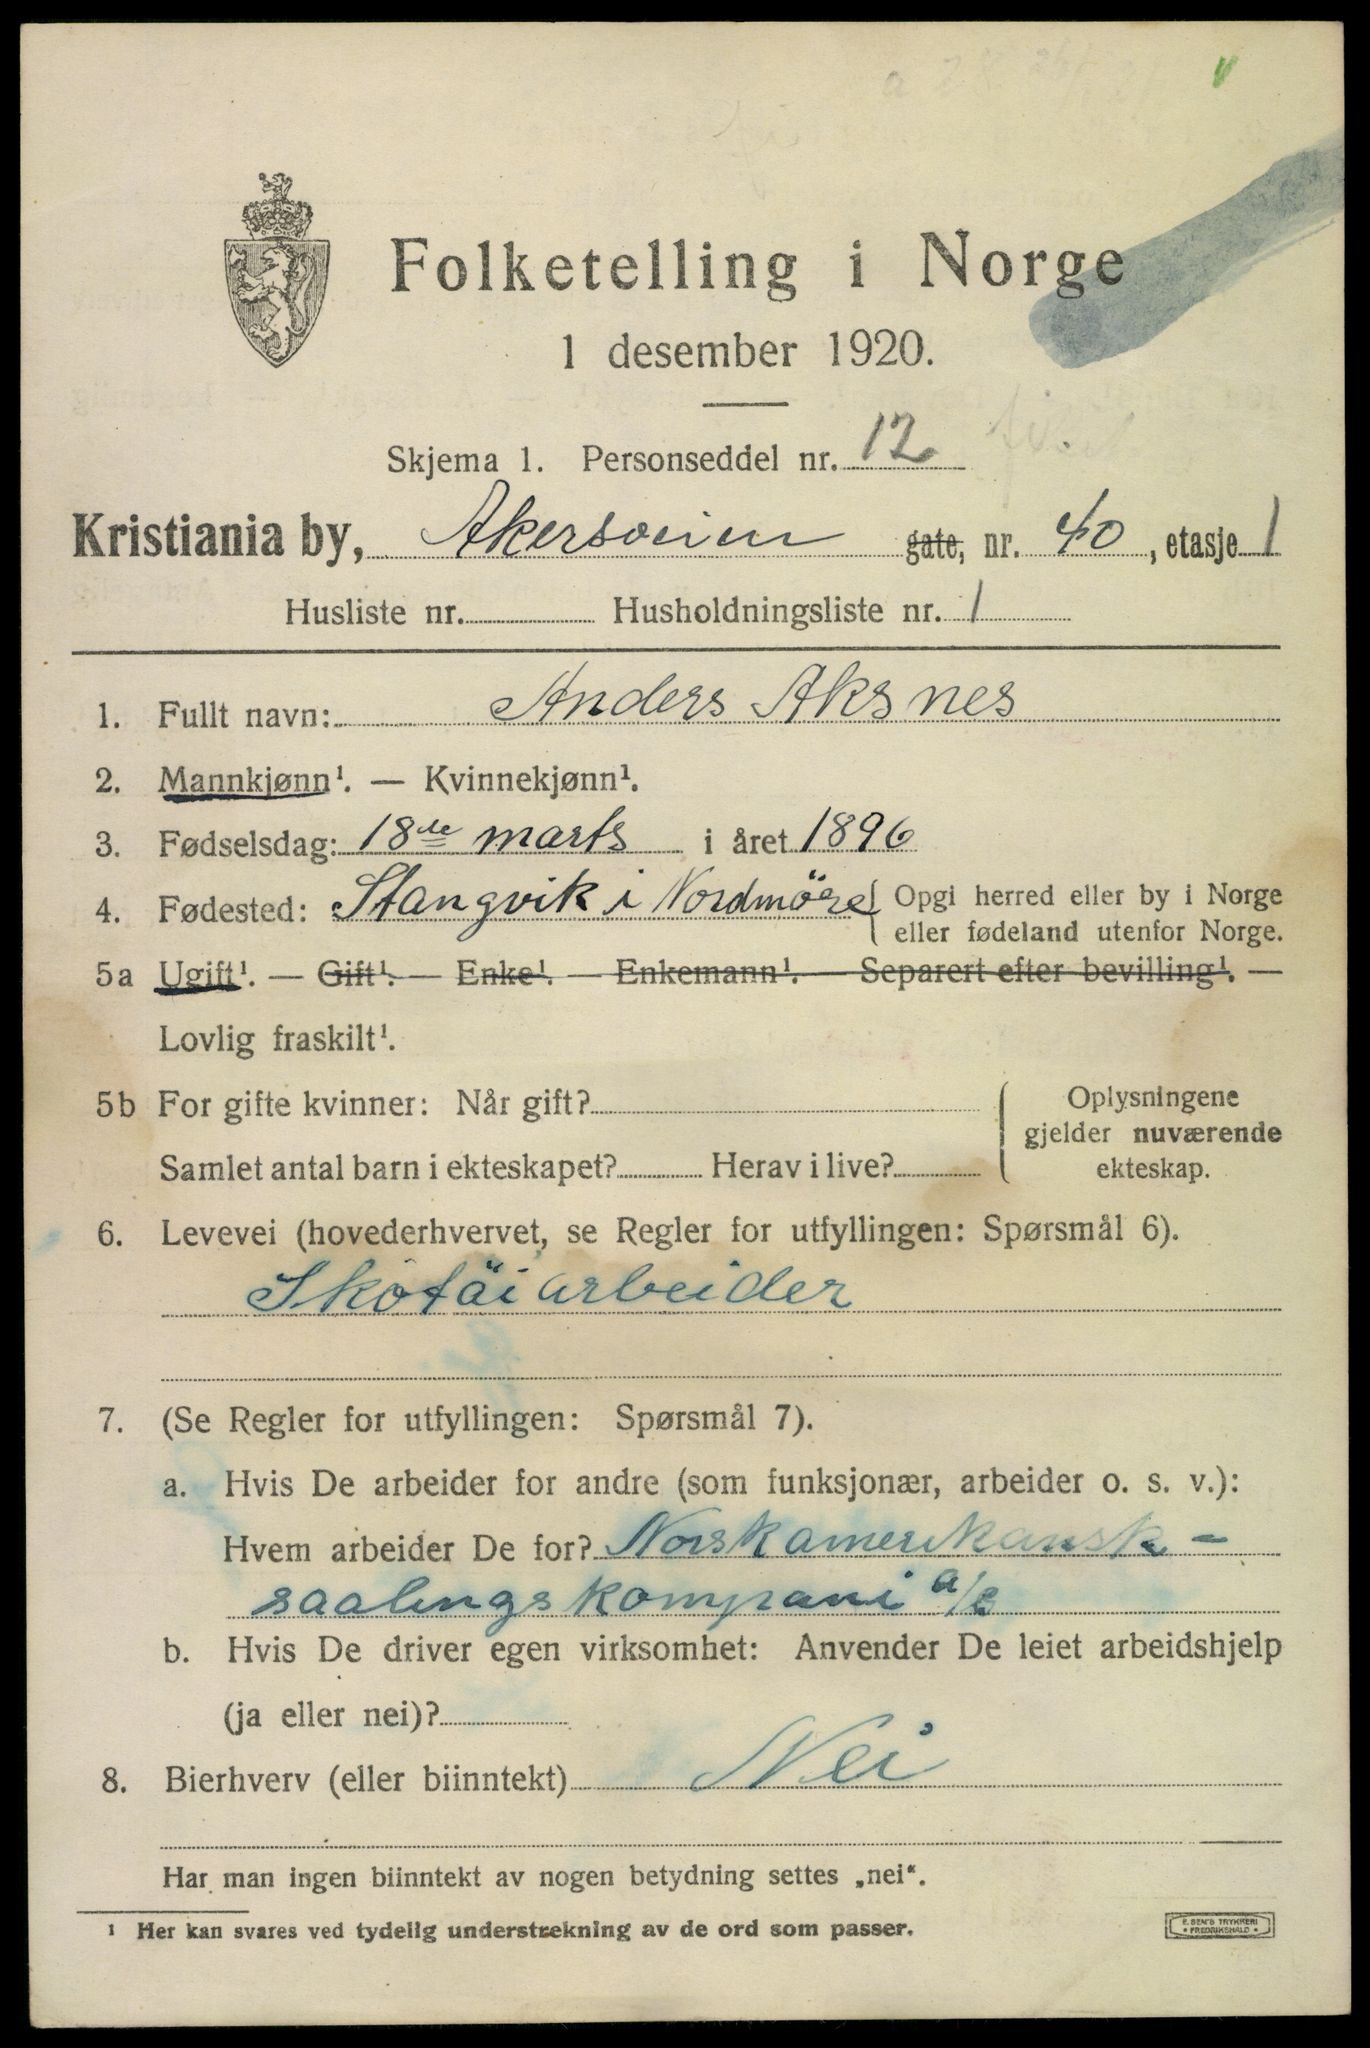 Folketelling i Norge
1 desember 1920.
Skjema 1. Personseddel nr. 12
Kristiania by, Akersveien gate, nr. 40, etasje 1
Husliste nr. Husholdningsliste nr. 1
1. Fullt navn: Anders Aksnes
2. Mannkjønn¹. — Kvinnekjønn¹.
3. Fødselsdag: 18de marts i året 1896
4. Fødested: Stangvik i Nordmöre { Opgi herred eller by i Norge
eller fødeland utenfor Norge.
5a Ugift¹. — Gift¹. — Enke¹. — Enkemann¹. — Separert efter bevilling¹. —
Lovlig fraskilt¹.
5b For gifte kvinner: Når gift? Oplysningene
gjelder nuværende
Samlet antal barn i ekteskapet? Herav i live? ekteskap.
6. Levevei (hovederhvervet, se Regler for utfyllingen: Spørsmål 6).
Skotöiarbeider
7. (Se Regler for utfyllingen: Spørsmål 7).
a. Hvis De arbeider for andre (som funksjonær, arbeider o. s. v.):
Hvem arbeider De for? Norskamerikansk-
saalingskompani a/s
b. Hvis De driver egen virksomhet: Anvender De leiet arbeidshjelp
(ja eller nei)?
8. Bierhverv (eller biinntekt) Nei
Har man ingen biinntekt av nogen betydning settes „nei“.
¹ Her kan svares ved tydelig understrekning av de ord som passer.
E. SEM'S TRYKKERI
FREDRIKSHALD